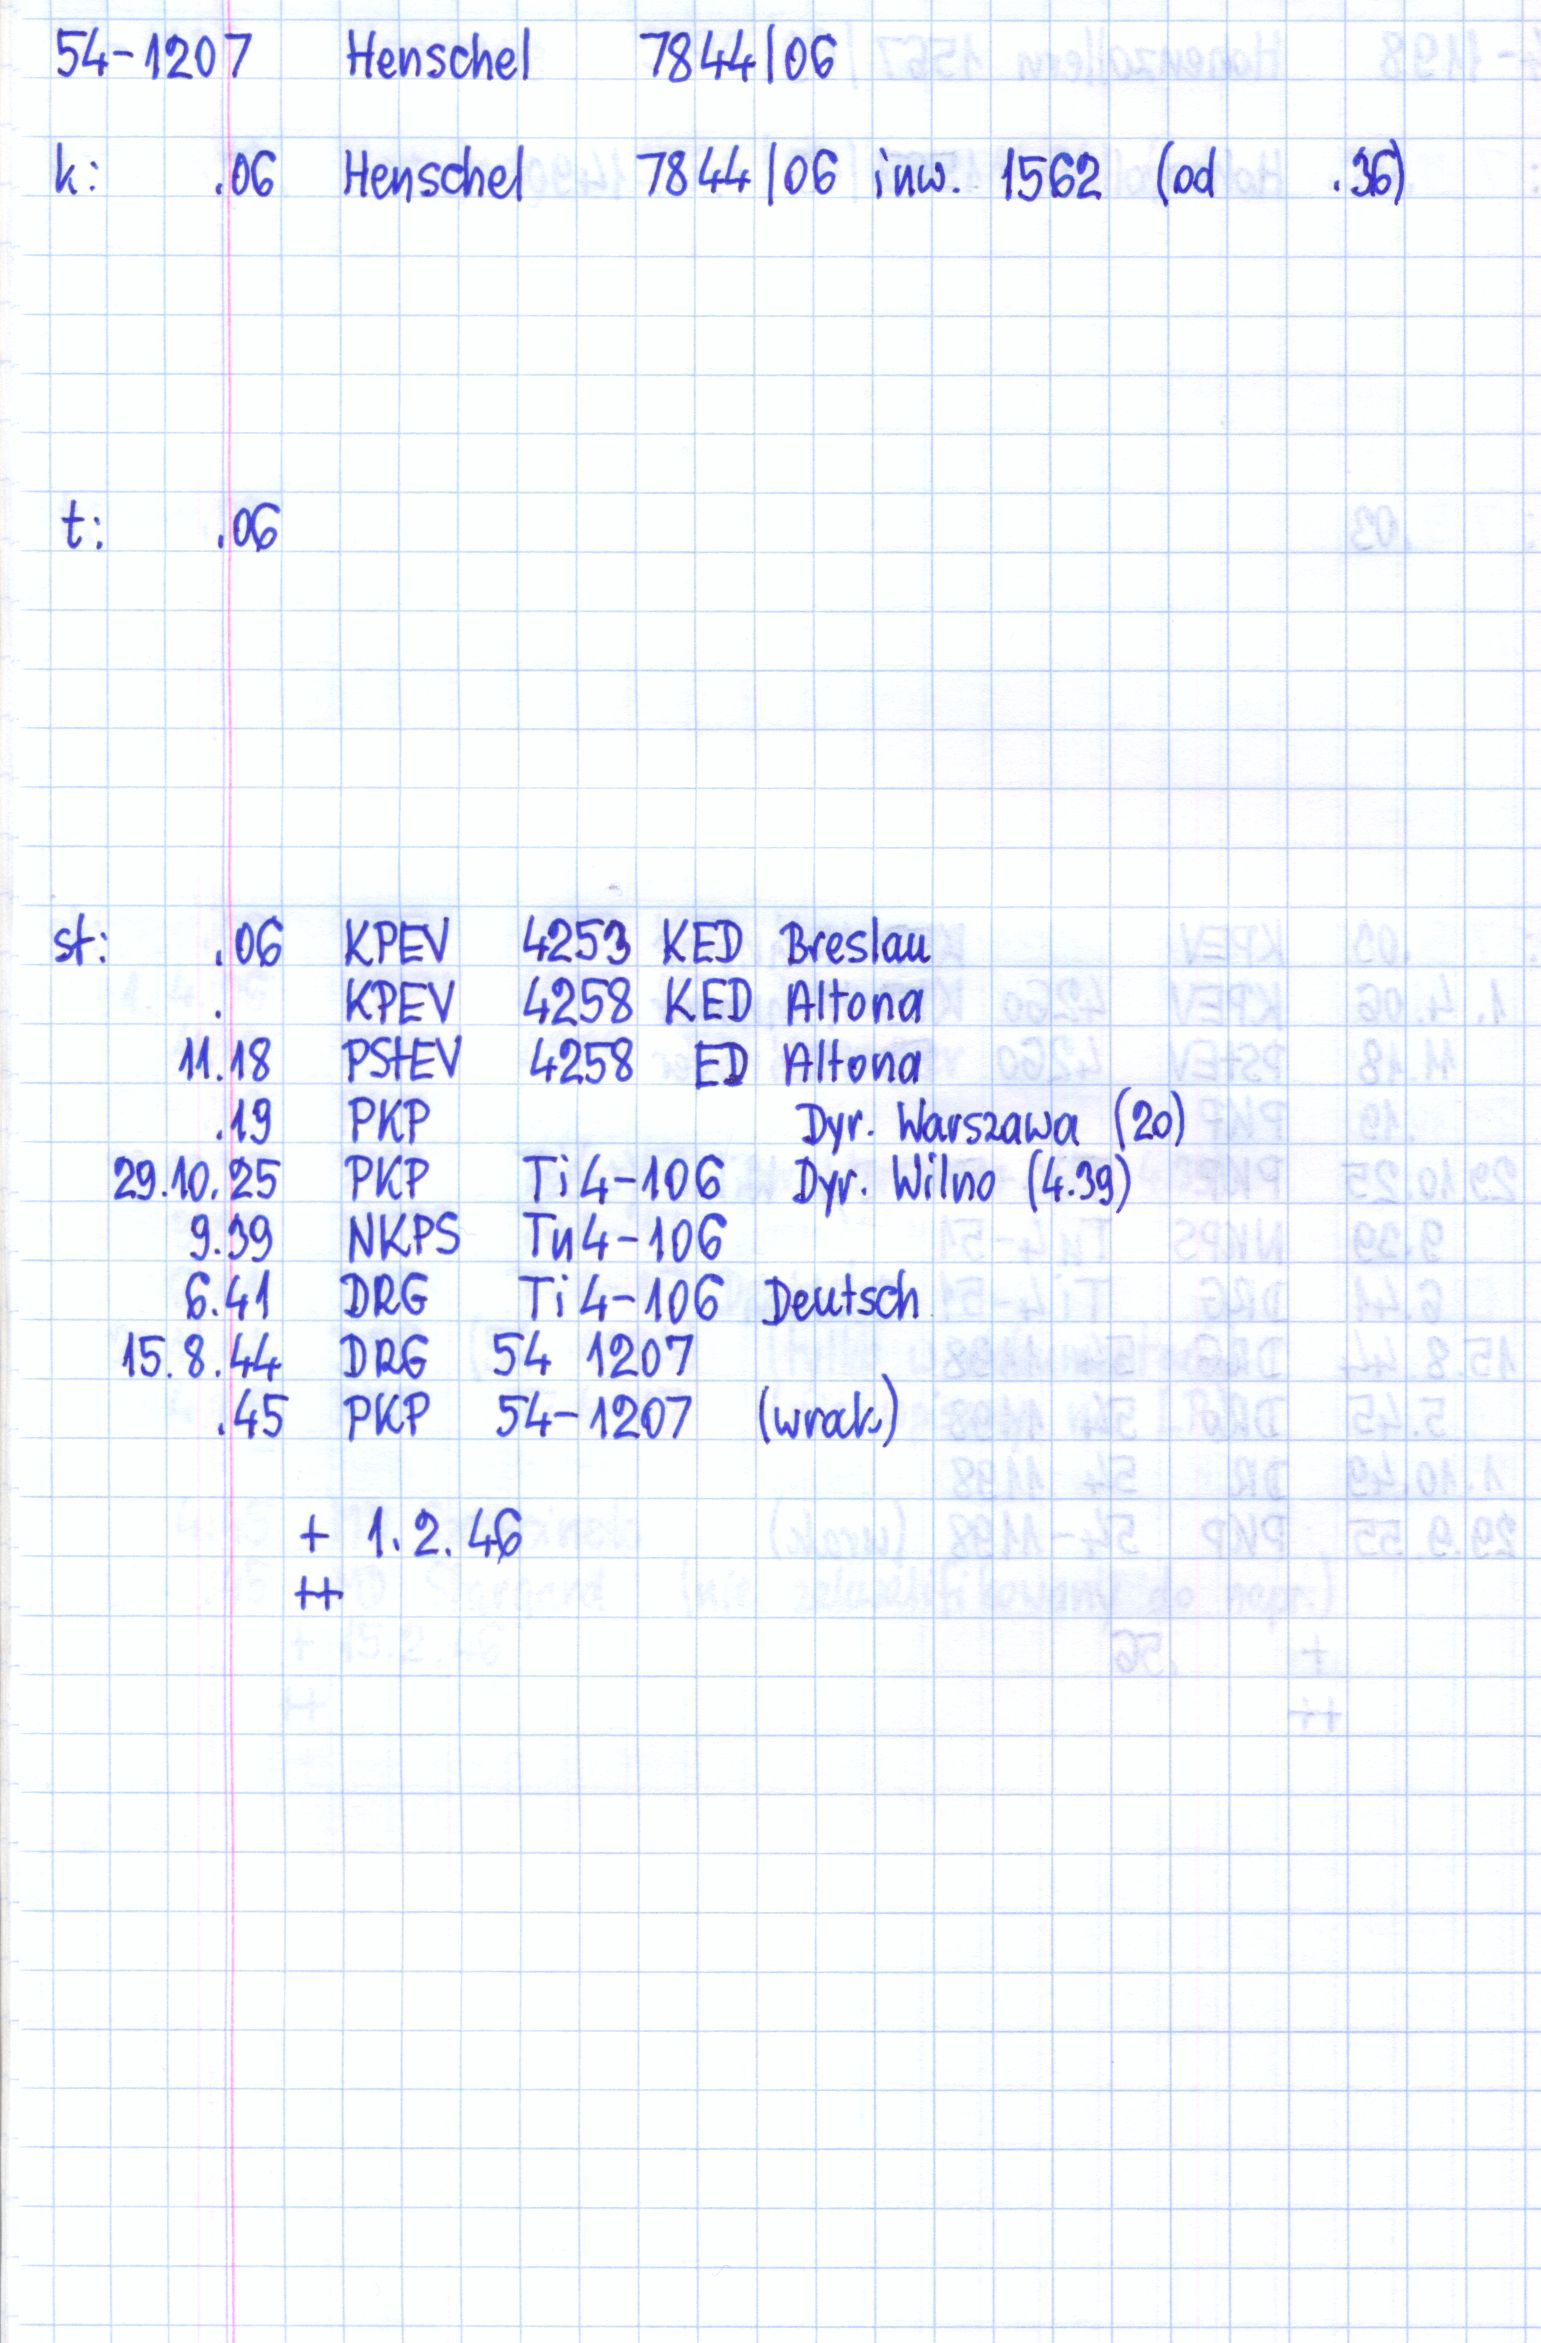 54-1207 Henschel 7844/06
k: .06 Henschel 7844/06 inw. 1562 (od .36)
t: .06
st: .06 KPEV 4253 KED Breslau
. KPEV 4258 KED Altona
11.18 PStEV 4258 ED Altona
.19 PKP Dyr. Warszawa (20)
29.10.25 PKP Ti4-106 Dyr. Wilno (4.39)
9.39 NKPS Tu4-106
6.41 DRG Ti4-106 Deutsch
15.8.44 DRG 54 1207
.45 PKP 54-1207 (wrak)
+ 1.2.46
++